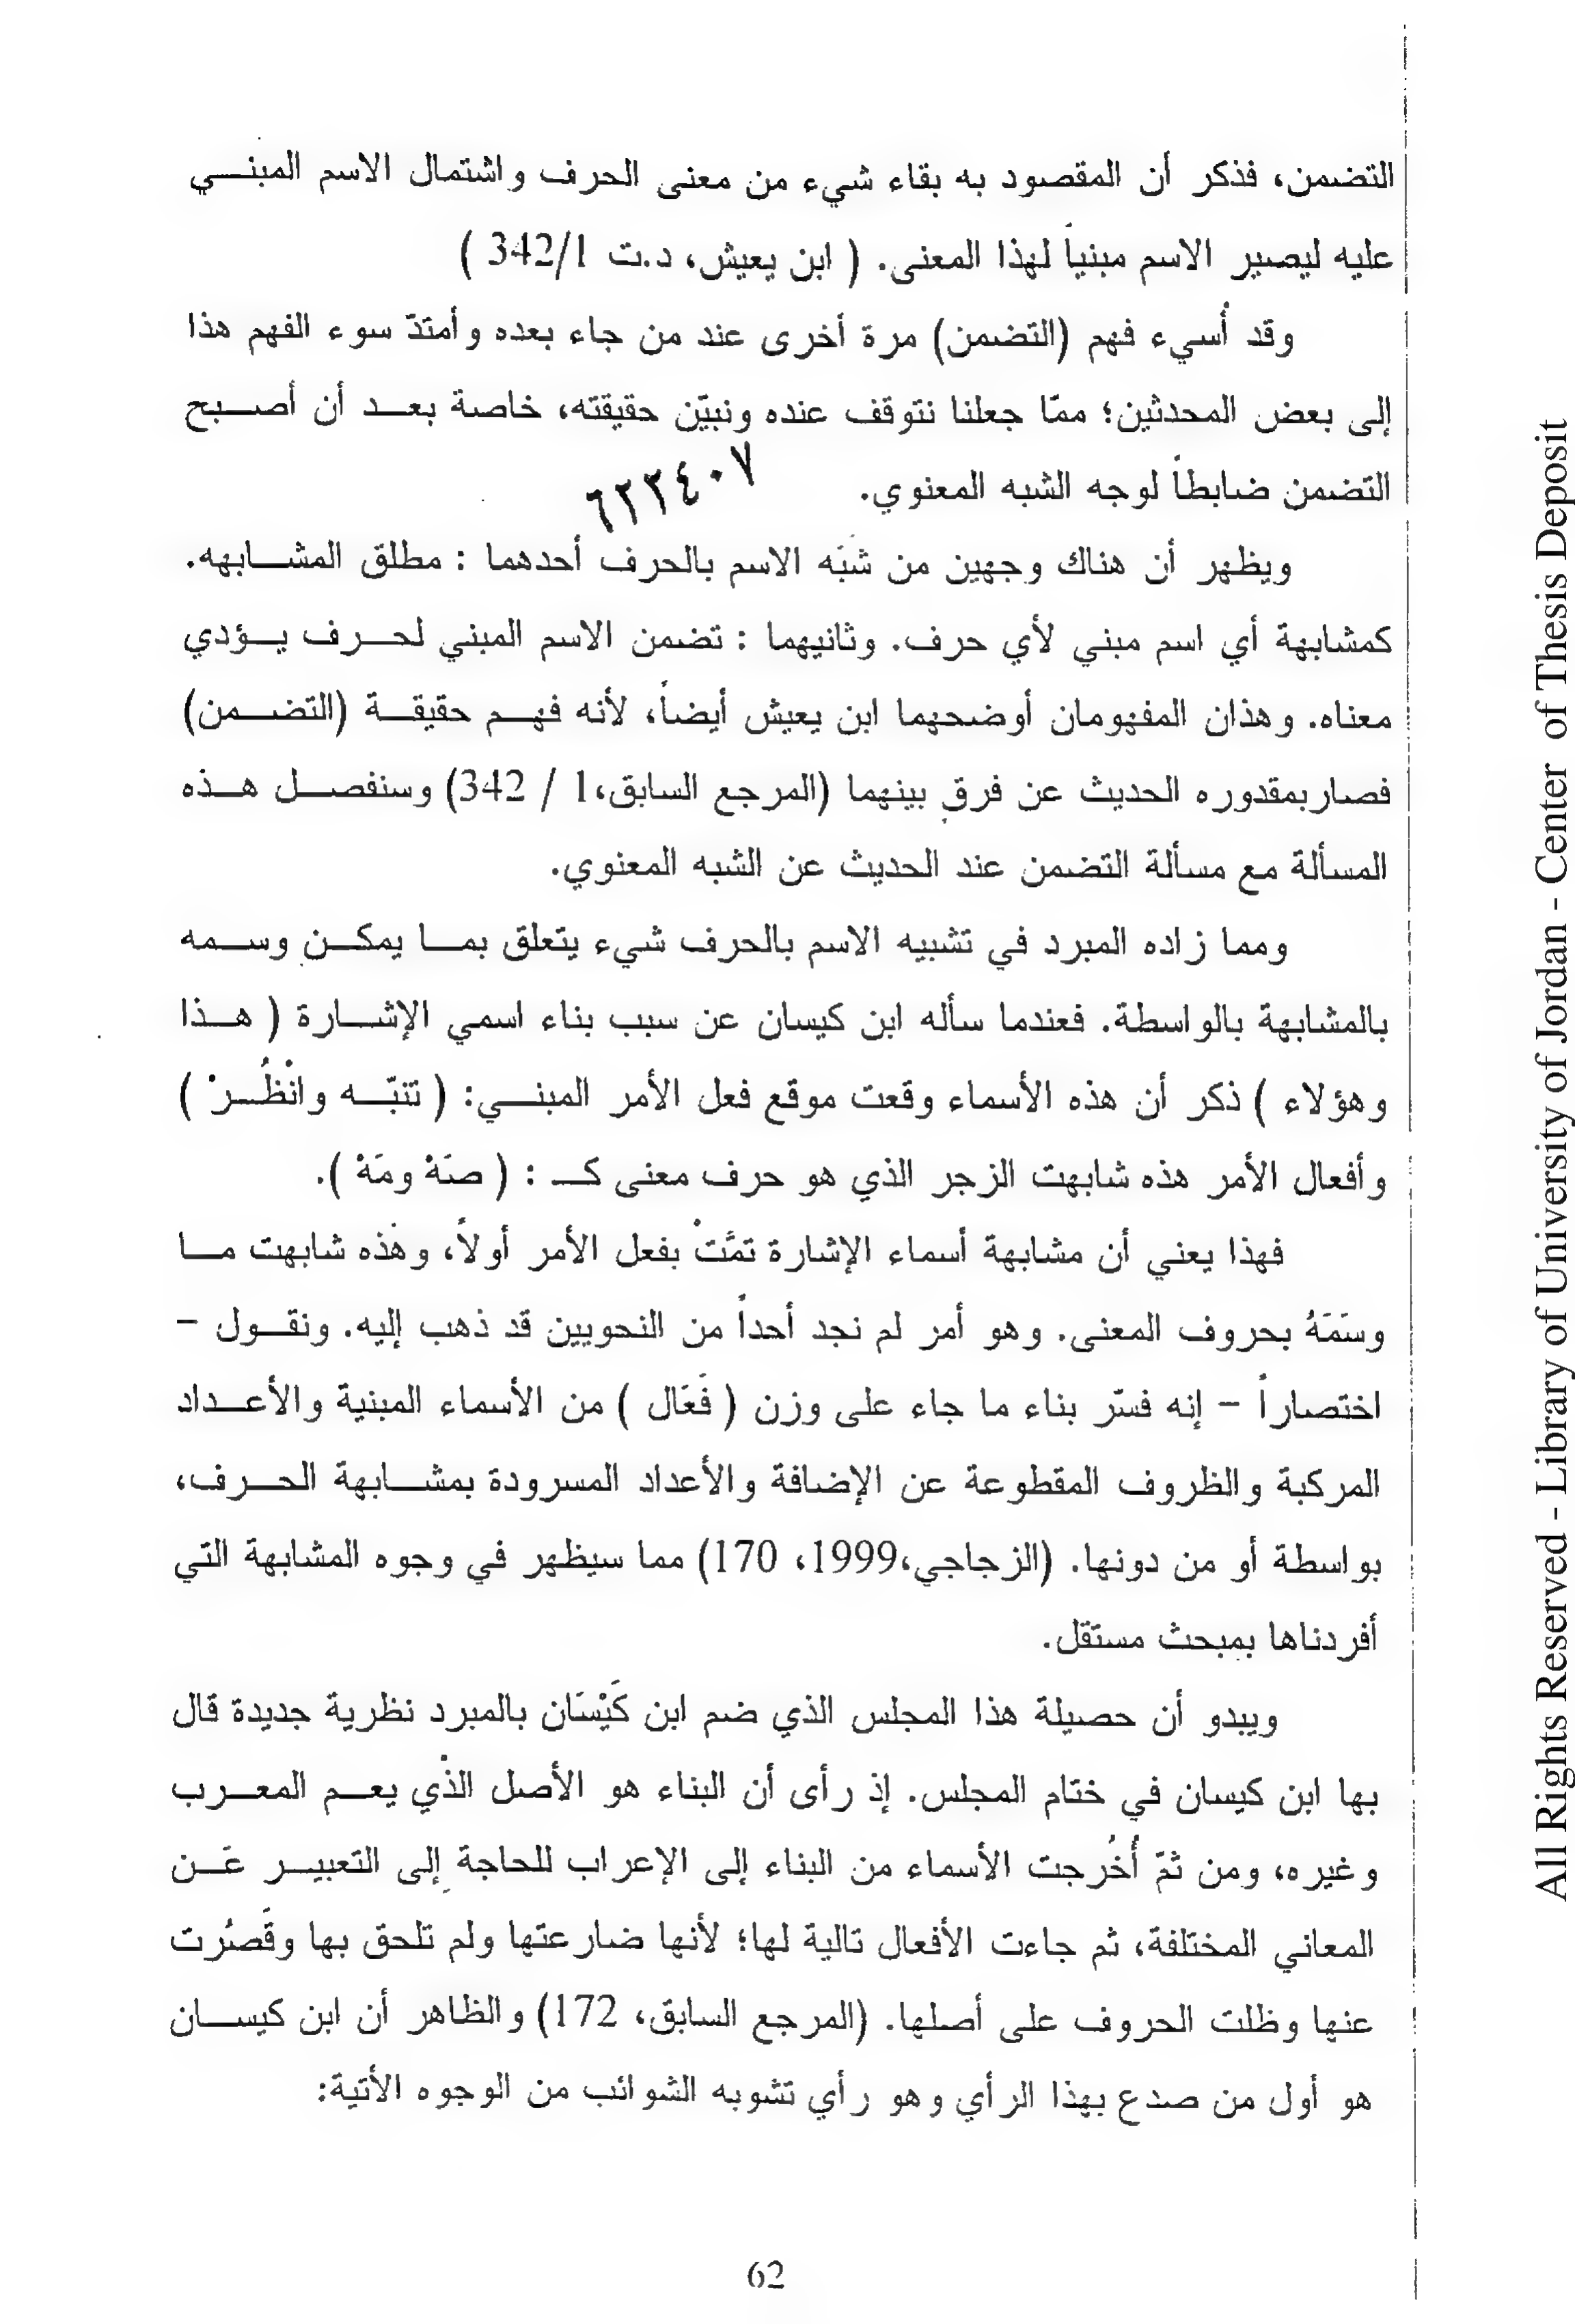 التضمن، فذكر أن المقصود به بقاء شيء من معنى الحرف واشتمال الاسم المبنـي
عليه ليصير الاسم مبنياً لهذا المعنى. ( ابن يعيش، د.ت 342/1 )
وقد أُسيء فهم (التضمن) مرة أخرى عند من جاء بعده وأمتدّ سوء الفهم هذا
إلى بعض المحدثين؛ ممّا جعلنا نتوقف عنده ونبيّن حقيقته، خاصة بعـد أن أصـبح
التضمن ضابطاً لوجه الشبه المعنوي.
٦٢٢٤٠٧
ويظهر أن هناك وجهين من شَبَه الاسم بالحرف أحدهما : مطلق المشـابهه.
كمشابهة أي اسم مبني لأي حرف. وثانيهما : تضمن الاسم المبني لحـرف يـؤدي
معناه. وهذان المفهومان أوضحهما ابن يعيش أيضاً، لأنه فهـم حقيقـة (التضـمن)
فصاربمقدوره الحديث عن فرق بينهما (المرجع السابق،1 / 342) وسنفصـل هـذه
المسألة مع مسألة التضمن عند الحديث عن الشبه المعنوي.
ومما زاده المبرد في تشبيه الاسم بالحرف شيء يتعلق بمـا يمكـن وسـمه
بالمشابهة بالواسطة. فعندما سأله ابن كيسان عن سبب بناء اسمي الإشـارة ( هـذا
وهؤلاء ) ذكر أن هذه الأسماء وقعت موقع فعل الأمر المبنـي: ( تنبّـه وانْظُـرْ )
وأفعال الأمر هذه شابهت الزجر الذي هو حرف معنى كـ : ( صَهْ ومَهْ ).
فهذا يعني أن مشابهة أسماء الإشارة تمَّتْ بفعل الأمر أولاً، وهذه شابهت مـا
وسَمَهُ بحروف المعنى. وهو أمر لم نجد أحداً من النحويين قد ذهب إليه. ونقـول -
اختصاراً - إنه فسّر بناء ما جاء على وزن ( فَعَال ) من الأسماء المبنية والأعـداد
المركبة والظروف المقطوعة عن الإضافة والأعداد المسرودة بمشـابهة الحـرف،
بواسطة أو من دونها. (الزجاجي،1999، 170) مما سيظهر في وجوه المشابهة التي
أفردناها بمبحث مستقل.
ويبدو أن حصيلة هذا المجلس الذي ضم ابن كَيْسَان بالمبرد نظرية جديدة قال
بها ابن كيسان في ختام المجلس. إذ رأى أن البناء هو الأصل الذي يعـم المعـرب
وغيره، ومن ثمّ أُخْرجت الأسماء من البناء إلى الإعراب للحاجة إلى التعبيـر عَـن
المعاني المختلفة، ثم جاءت الأفعال تالية لها؛ لأنها ضارعتها ولم تلحق بها وقَصُرت
عنها وظلت الحروف على أصلها. (المرجع السابق، 172) والظاهر أن ابن كيسـان
هو أول من صدع بهذا الرأي وهو رأي تشوبه الشوائب من الوجوه الأتية:
62
All Rights Reserved - Library of University of Jordan - Center of Thesis Deposit